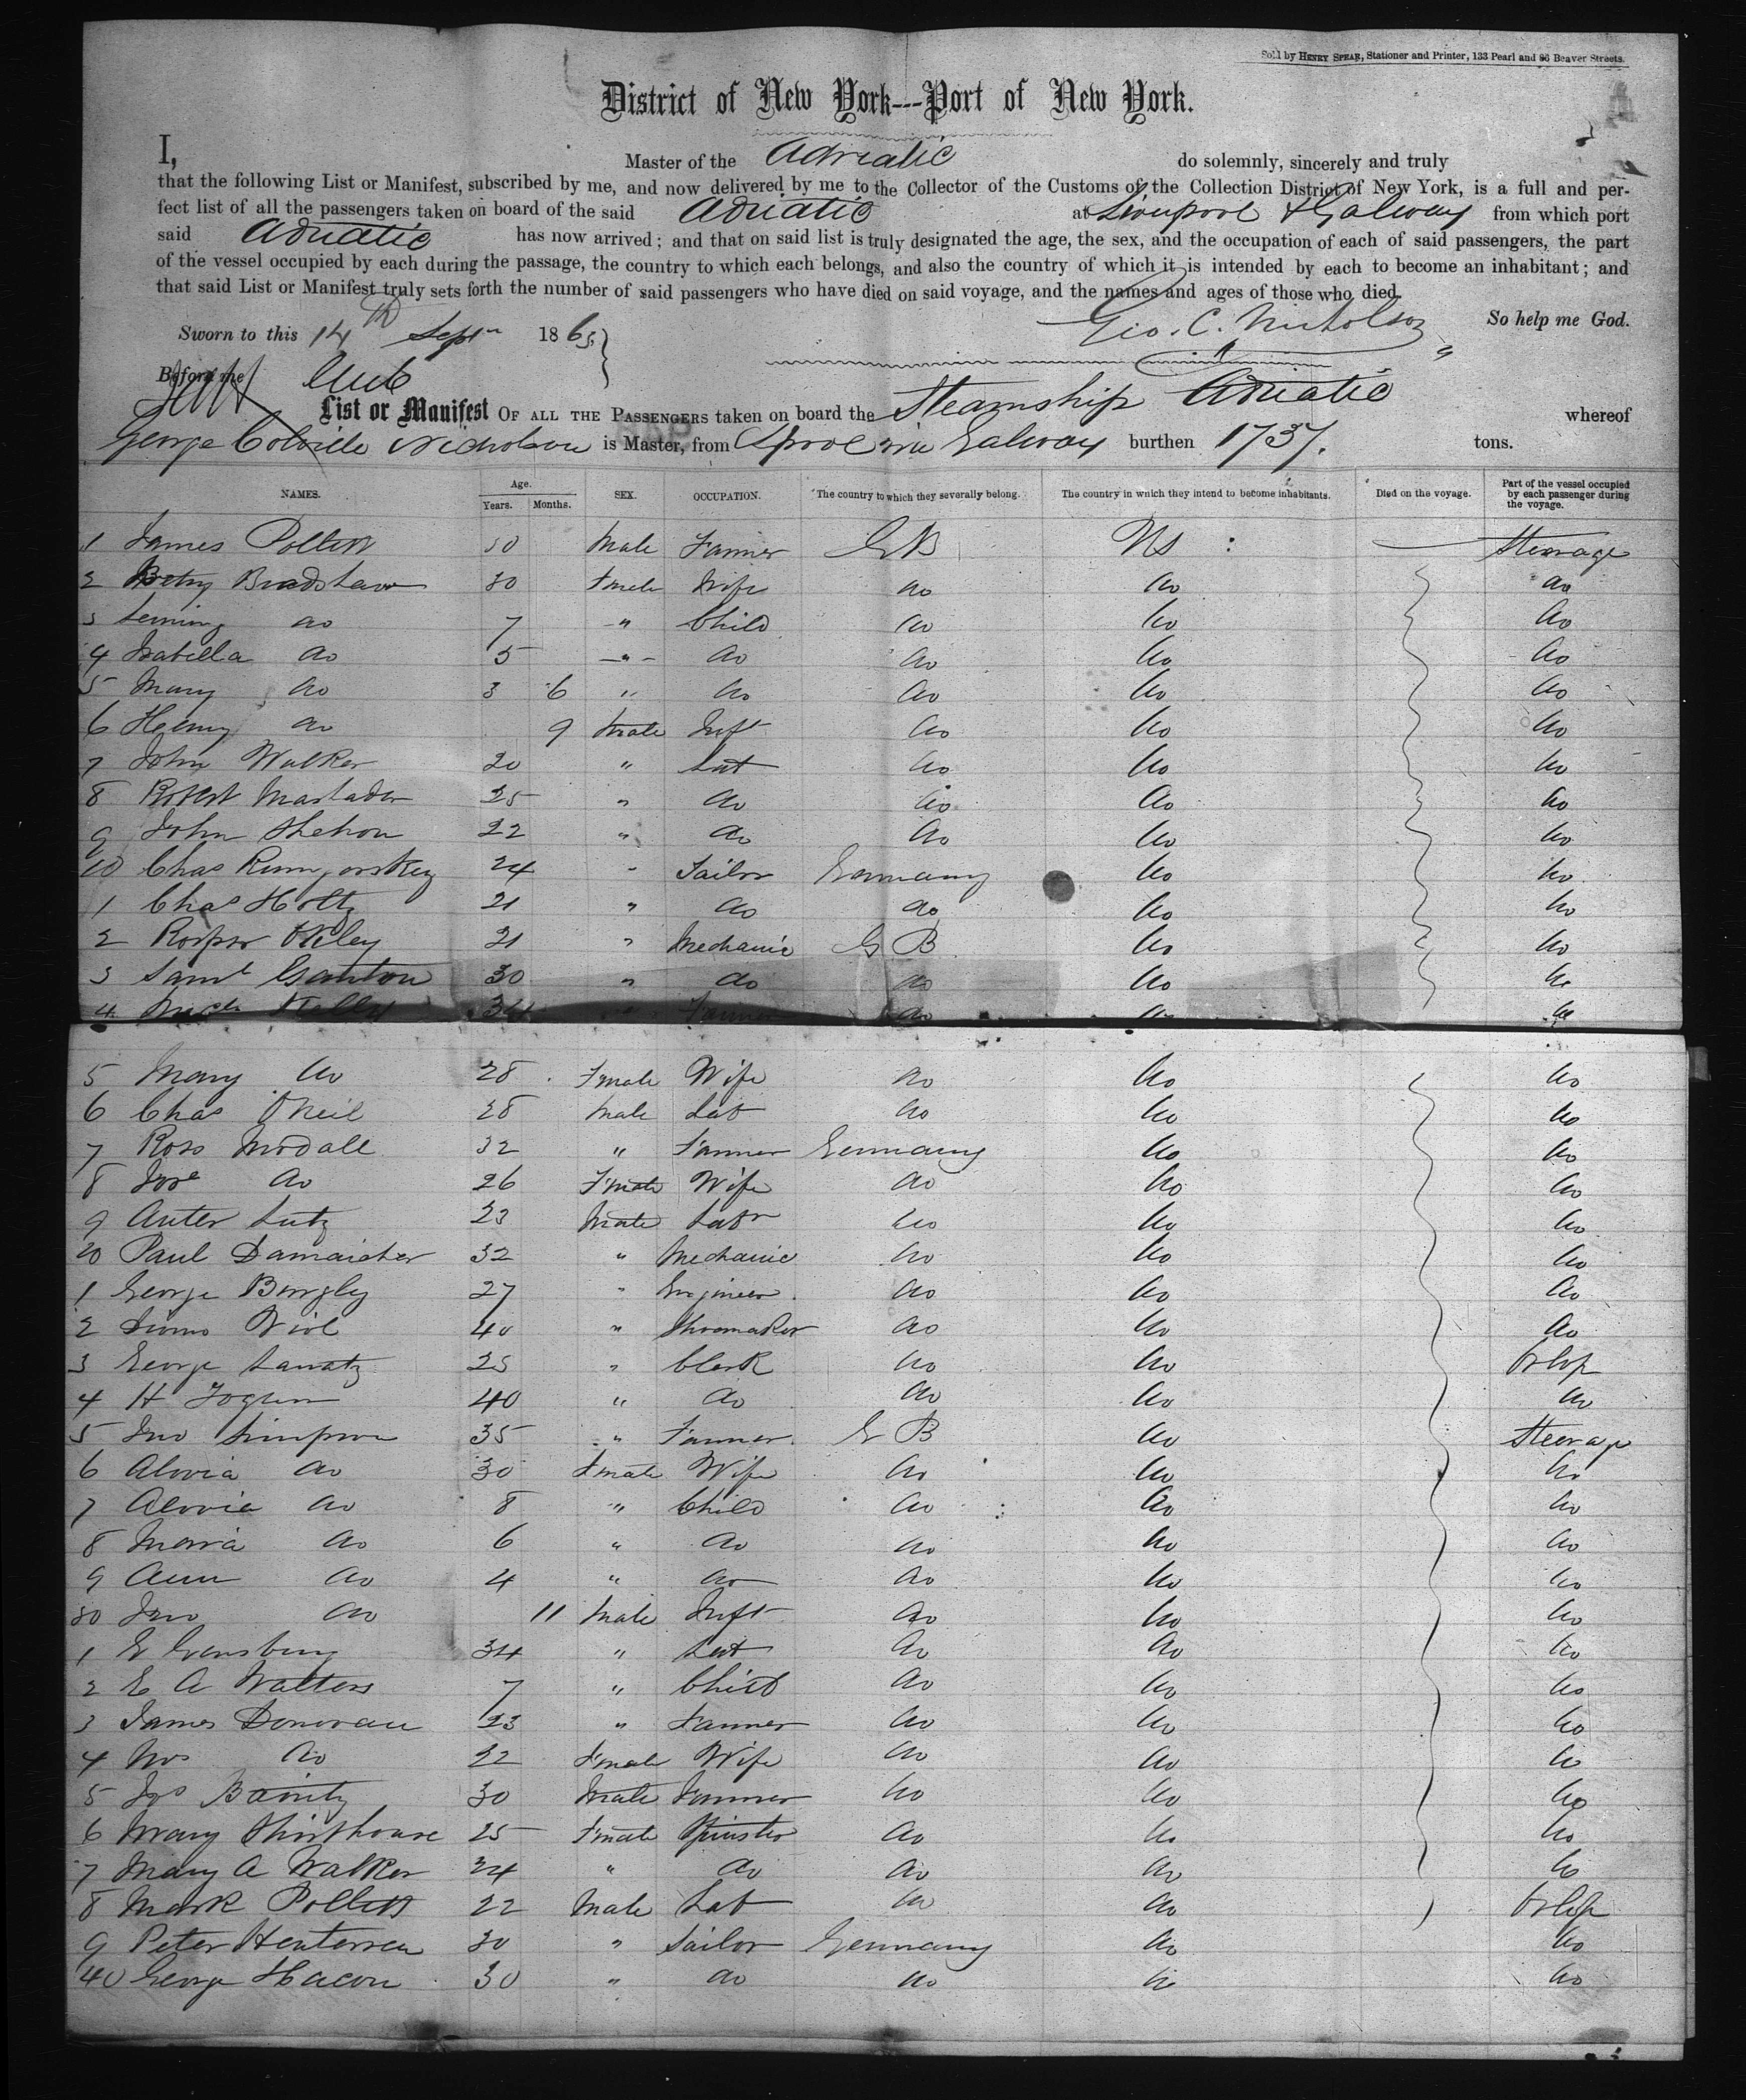 Sold by HENRY SPEAR, Stationer and Printer, 133 Pearl and 86 Beaver Streets.
District of New York---Port of New York.
I, Master of the Adriatic do solemnly, sincerely and truly
that the following List or Manifest, subscribed by me, and now delivered by me to the Collector of the Customs of the Collection District of New York, is a full and per-
fect list of all the passengers taken on board of the said Adriatic at Liverpool & Galway from which port
said Adriatic has now arrived; and that on said list is truly designated the age, the sex, and the occupation of each of said passengers, the part
of the vessel occupied by each during the passage, the country to which each belongs, and also the country of which it is intended by each to become an inhabitant; and
that said List or Manifest truly sets forth the number of said passengers who have died on said voyage, and the names and ages of those who died.
So help me God.
Sworn to this 14th Sept 186
Geo. C. Nicholson
Before me
List or Manifest OF ALL THE PASSENGERS taken on board the Steamship Adriatic whereof
George Colville Nicholson is Master, from Lpool via Galway burthen 1737. tons.
NAMES. Age. Years. Months. SEX. OCCUPATION. The country to which they severally belong. The country in which they intend to become inhabitants. Died on the voyage. Part of the vessel occupied by each passenger during the voyage.
1 James Pollitt Male Farmer GB US Steerage
2 Betsy Bradshaw 30 Female Wife do do do
3 do 7 " Child do do do
4 Isabella do 5 " do do do do
5 Mary do 3 6 " do do do do
6 Henry do 9 Male Inft do do do
7 John Walker 20 " Lab do do do
8 Robert 25 " do do do do
9 John 22 " do do do do
10 Chas 24 " Tailor Germany do do
1 Chas Holtz 21 " do do do do
2 21 " Mechanic GB do do
3 Saml 30 " do do do do
4 Kelly 34 " Farmer do do do
5 Mary do 28 Female Wife do do do
6 Chas ONeil 28 Male Lab do do do
7 Ross 32 " Farmer Germany do do
8 do 26 Female Wife do do do
9 Lutz 23 Male Labr do do do
20 Paul Damaister 32 " Mechanic do do do
1 George 27 " Engineer do do do
2 40 " Shoemaker do do do
3 George 25 " Clerk do do Orlop
4 H 40 " do do do do
5 Jno Simpson 35 " Farmer GB do Steerage
6 do 30 Female Wife do do do
7 do 8 " Child do do do
8 Maria do 6 " do do do do
9 Ann do 4 " do do do do
30 Jno do 11 Male Inft do do do
1 34 " Lab do do do
2 E A Walters 7 " Child do do do
3 James Donovan 23 " Farmer do do do
4 Mrs do 22 Female Wife do do do
5 30 Male Farmer do do do
6 Mary Shorthouse 25 Female Spinster do do do
7 Mary A Walker 24 " do do do do
8 Mark Pollitt 22 Male Lab do do Orlop
9 Peter 30 " Sailor Germany do do
40 George Hacon 30 " do do do do